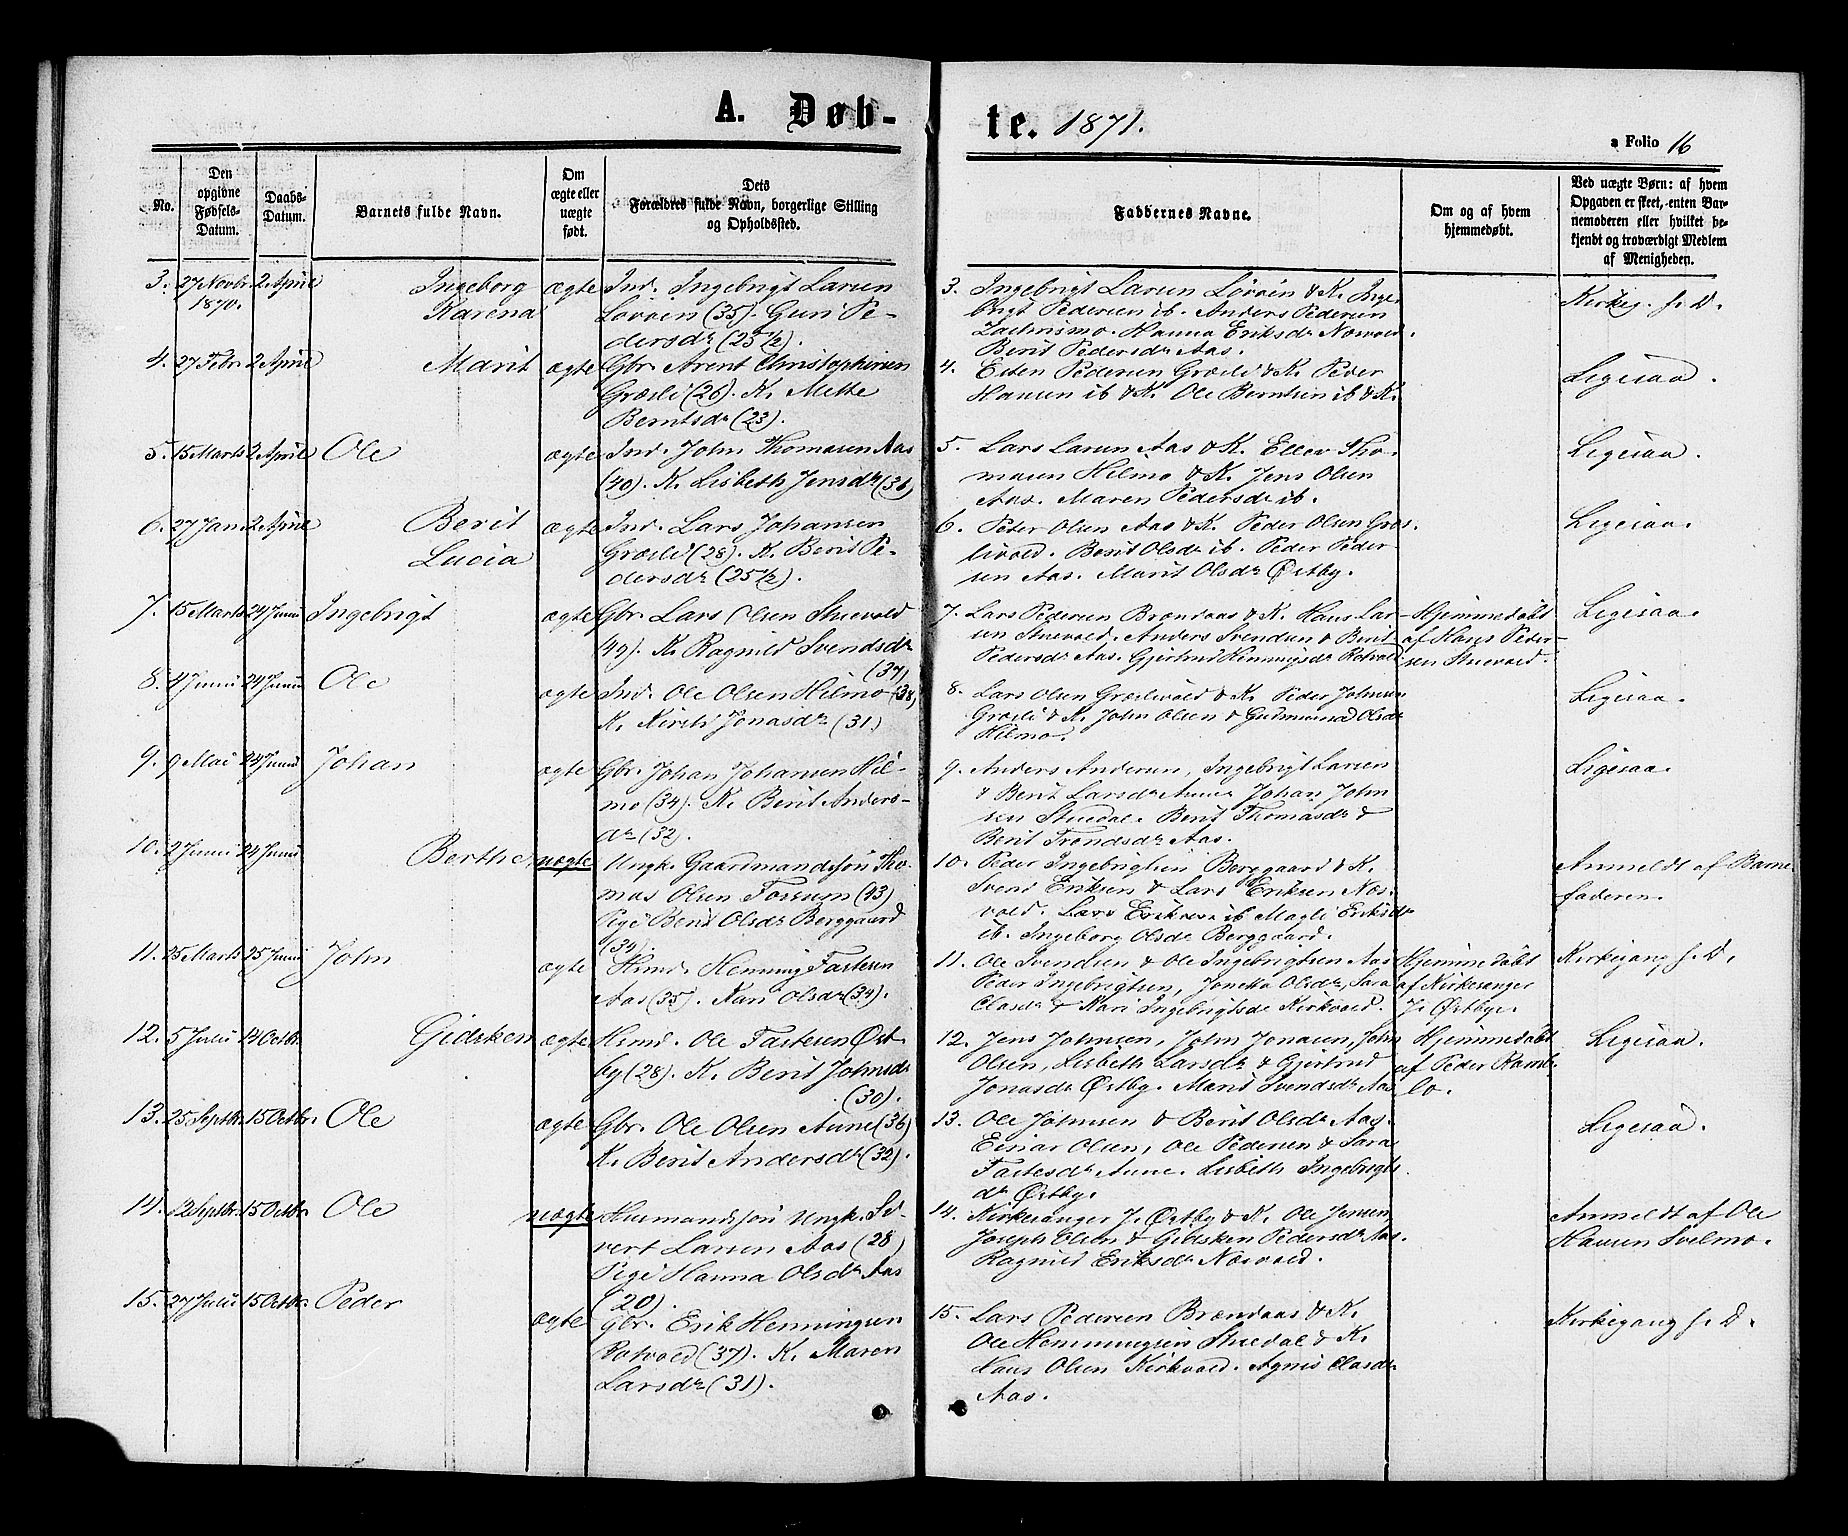 A. Døb-
te. 1871.
a Folio 16
No.
Den opgivne Fødsels-Datum.
Daabs-Datum.
Barnets fulde Navn.
Om ægte eller uægte født.
Dets Forældres fulde Navn, borgerlige Stilling og Opholdssted.
Faddernes Navne.
Om og af hvem hjemmedøbt.
Ved uægte Børn: af hvem Opgaven er skeet, enten Barnemoderen eller hvilket bekjendt og troværdigt Medlem af Menigheden.
3. 27 Novbr. 1870. 2 April Ingeborg Karena ægte Ind. Ingebrigt Larsen
Løvøien (35). Guri Pe-
dersdr (25 1/2).
3. Ingebrigt Larsen Løvøien & K. Inge-
brigt Pedersen ib. Anders Pedersen
Hanna Eriksdr Næsvold.
Berit Pedersdr Aas.
Kirkeg. f. D.
4. 27 Febr. 2 April Marit ægte Gbr. Arent Christophersen
Græsli (26). K. Mette
Berntsdr (23).
4. Esten Pedersen Græsli & K. Peder
Hansen ib & K. Ole Berntsen ib & K.
Ligesaa.
5. 15 Marts 2 April Ole ægte Ind. John Thomasen Aas
(40). K. Lisbeth Jensdr (36)
5. Lars Larsen Aas & K. Ellev Tho-
masen Hilmo & K. Jens Olsen
Aas. Maren Pedersdr ib.
Ligesaa.
6. 27 Jan 2 April Berit Lucia ægte Ind. Lars Johansen
Græsli (28). K. Berit Pe-
dersdr (25 1/2).
6. Peter Olsen Aas & K. Peder Olsen Græs-
livold. Berit Olsdr ib. Peder Peder-
sen Aas. Marit Olsdr Østby.
Ligesaa.
7. 15 Marts 24 Juni Ingebrigt ægte Gbr. Lars Olsen Stuevold
49). K. Ragnild Svendsdr
(37)
7. Lars Pedersen Brændaas & K. Hans Lar-
sen Stuevold. Anders Svendsen & Berit
Pedersdr Aas. Gjertrud Henningsdr Rotvold
Hjemmedøbt
af Hans Peder-
sen Stuevold.
Ligesaa.
8. 4 Juni 24 Juni Ole ægte Ind. Ole Olsen Hilmo (38)
K. Kirsti Jonasdr (31)
8. Lars Olsen Græslivold & K. Peder Johnsen
Græsli & K. John Olsen & Gudmunna Olsdr
Hilmo.
Ligesaa.
9. 9 Mai 24 Juni Johan ægte Gbr. Johan Johansen Hil-
mo (34). K. Berit Anders-
dr (32).
9. Anders Andersen, Ingebrigt Larsen
& Berit Larsdr Aune Johan John-
sen Stuedal. Berit Thomasdr &
Berit Trondsdr Aas.
Ligesaa.
10. 2 Juni 24 Juni Berthe uægte Ungk. Gaardmandssøn Tho-
mas Olsen Fossum (43)
Pige Berit Olsdr Berggaard
(34).
10. Peder Ingebrigtsen Berggaard & K.
Svend Eriksen & Lars Eriksen Næs-
vold. Lars Eriksen ib Magli Eriksdr
ib. Ingeborg Olsdr Berggaard.
Anmeldt af Barne-
faderen.
11. 25 Marts 25 Juni John ægte Hsmd. Henning Fastesen
Aas (35). Kari Olsdr (34).
11. Ole Svendsen & Ole Ingebrigtsen Aas
Peder Ingebrigtsen, Jonetta Olsdr, Sara
Clasdr & Kari Ingebrigtsdr Kirkvold.
Hjemmedøbt
af Kirkesanger
J. Østbye.
Kirkegang f. D.
12. 5 Juli 14 Octbr. Gidsken ægte Hsmd. Ole Fastesen Øst-
by (28). K. Berit Johnsdr
(30).
12. Jens Johnsen, John Jonasen, John
Olsen, Lisbeth Larsdr & Gjertrud
Jonasdr Østby. Marit Svendsdr Aas
Hjemmedøbt
af Peder Kamb-
lo.
Ligesaa.
13. 25 Septbr. 15 Octbr. Ole ægte Gbr. Ole Olsen Aune (36)
K. Berit Andersdr (32).
13. Ole Johnsen & Berit Olsdr Aas.
Einar Olsen, Ole Pedersen & Sara
Fastesdr Aune. Lisbeth Ingebrigts-
dr Østby.
Ligesaa.
14. 12 Septbr. 15 Octbr. Ole uægte Husmandssøn Ungk. Si-
vert Larsen Aas (28)
Pige Hanna Olsdr Aas
(20).
14. Kirkesanger J. Østby & K. Ole Jensen,
Joseph Olsen & Gidsken Pedersdr Aas.
Ragnild Eriksdr Næsvold.
Anmeldt af Ole
Hansen Svelmo.
15. 27 Juli 15 Octbr. Peder ægte Gbr. Erik Henningsen
Rotvold (37). K. Maren
Larsdr (31).
15. Lars Pedersen Brændaas & K.
Ole Hemmingsen Stuedal & K.
Hans Olsen Kirkvold. Agnis Clasdr
Aas.
Kirkegang f. D.